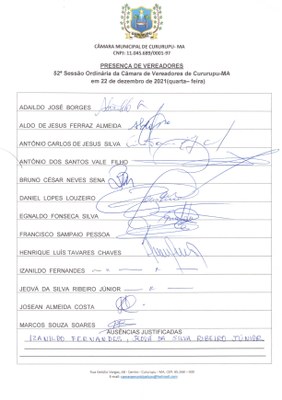 CÂMARA MUNICIPAL DE CURURUPU- MA
CNPJ: 11.045.689/0001-97
PRESENÇA DE VEREADORES
52ª Sessão Ordinária da Câmara de Vereadores de Cururupu-MA
em 22 de dezembro de 2021(quarta– feira)
ADAILDO JOSÉ BORGES
ALDO DE JESUS FERRAZ ALMEIDA
ANTÔNIO CARLOS DE JESUS SILVA
ANTÔNIO DOS SANTOS VALE FILHO
BRUNO CÉSAR NEVES SENA
DANIEL LOPES LOUZEIRO
EGNALDO FONSECA SILVA
FRANCISCO SAMPAIO PESSOA
HENRIQUE LUÍS TAVARES CHAVES
IZANILDO FERNANDES
JEOVÁ DA SILVA RIBEIRO JÚNIOR
JOSEAN ALMEIDA COSTA
MARCOS SOUZA SOARES
AUSÊNCIAS JUSTIFICADAS
IZANILDO FERNANDES, JEOVÁ DA SILVA RIBEIRO JÚNIOR